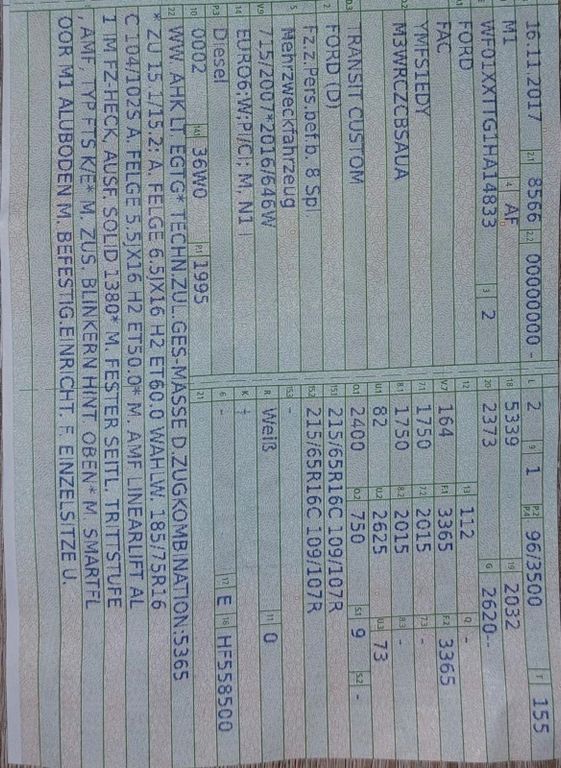 16.11.2017 2.1 8566 2.2 00000000 -
M1 4 AF
WF01XXTTG1HA14833 3 2
FORD
FAC
YMFS1EDY
M3WRCZCBSAUA
TRANSIT CUSTOM
FORD (D)
Fz.z.Pers.bef.b. 8 Spl
Mehrzweckfahrzeug
715/2007*2016/646W
EURO6;W;PI/CI; M, N1 I
Diesel
10 0002 14.1 36W0 P.1 1995
L 2 9 1 P.2 P.4 96/3500 T 155
18 5339 19 2032
20 2373 G 2620--
12 - 13 112 Q -
V.7 164 F.1 3365 F.2 3365
7.1 1750 7.2 2015 7.3 -
8.1 1750 8.2 2015 8.3 -
U.1 82 U.2 2625 U.3 73
O.1 2400 O.2 750 S.1 9 S.2 -
15.1 215/65R16C 109/107R
15.2 215/65R16C 109/107R
15.3 -
R Weiß 11 0
K -
6 - 17 E 16 HF558500
21
22 WW. AHK LT. EGTG* TECHN.ZUL.GES-MASSE D.ZUGKOMBINATION:5365
* ZU 15.1/15.2: A. FELGE 6.5JX16 H2 ET60.0 WAHLW. 185/75R16
C 104/102S A. FELGE 5.5JX16 H2 ET50.0* M. AMF LINEARLIFT AL
1 IM FZ-HECK, AUSF. SOLID 1380* M. FESTER SEITL. TRITTSTUFE
, AMF, TYP FTS K/E* M. ZUS. BLINKERN HINT. OBEN* M. SMARTFL
OOR M1 ALUBODEN M. BEFESTIG.EINRICHT. F. EINZELSITZE U.